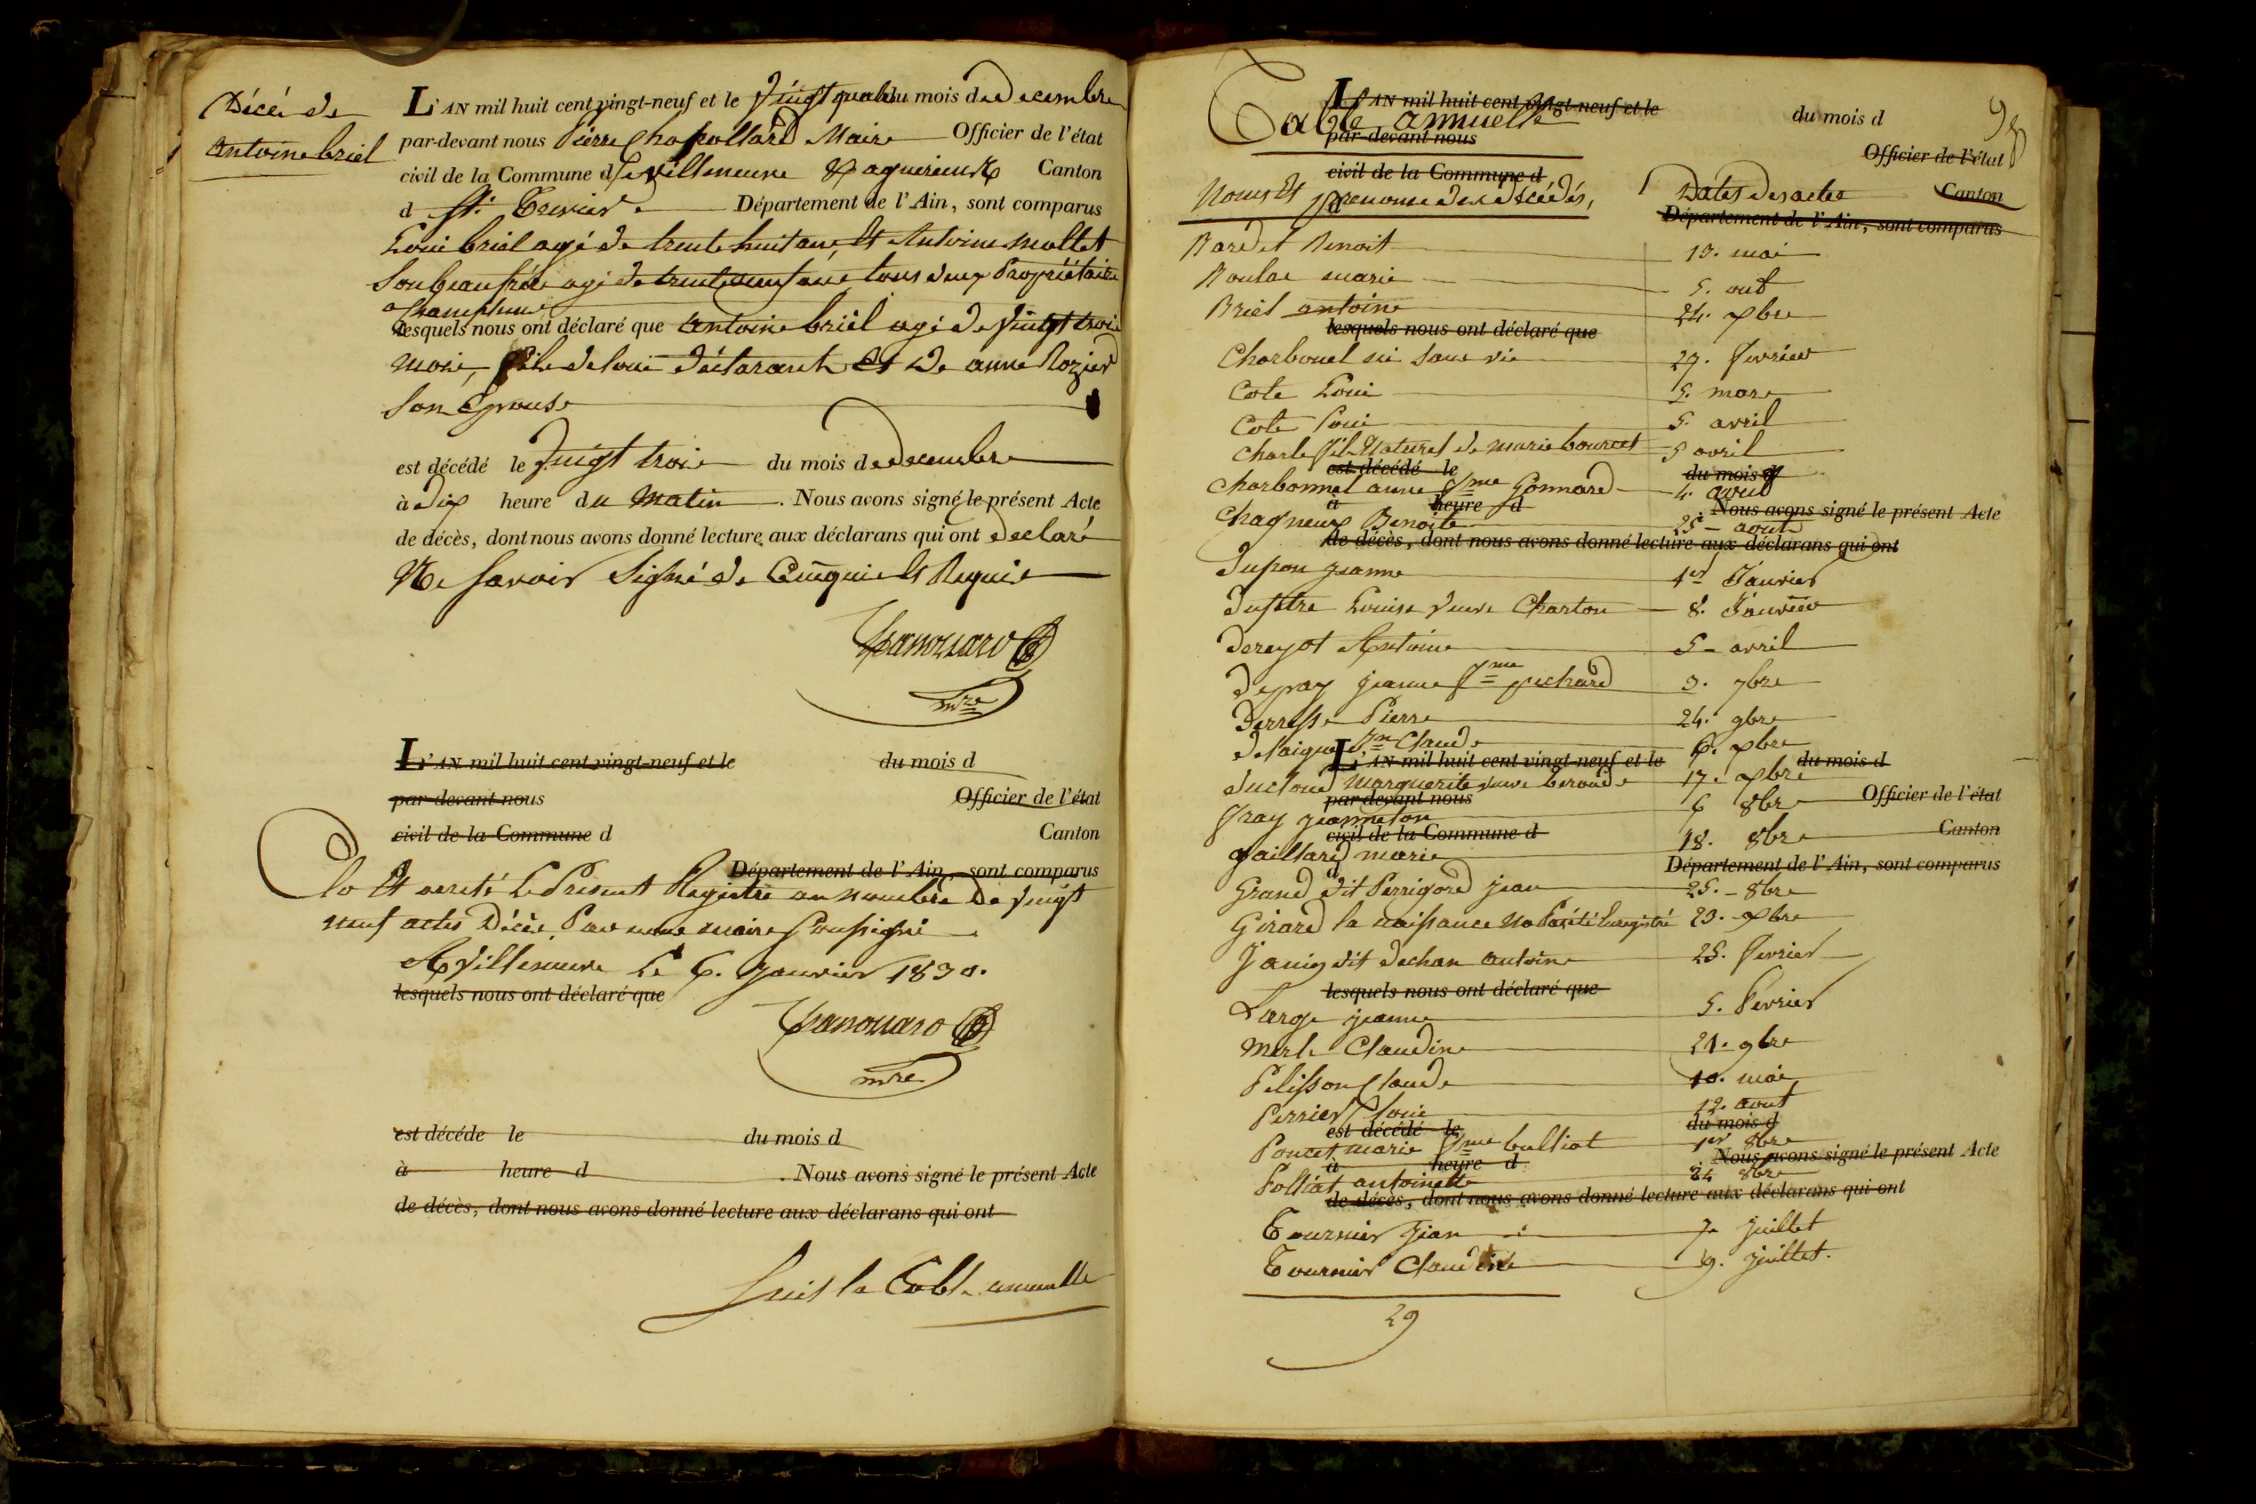 Décès de
Antoine briel
L'AN mil huit cent vingt-neuf et le Vingt quatre du mois de decembre
par-devant nous Pierre Chapollard Maire Officier de l'état
civil de la Commune de Villeneuve Canton
d St. Trevier Département de l'Ain, sont comparus
Loui briel agé de trente huit ans, Et Antoine Mollet
Son beaufrère agé de trente neuf ans, tous deux Propriétaire
lesquels nous ont déclaré que Antoine briel agé de Vingt trois
mois, fils de Loui déclarant Et de anne Rozier
Son Epouse
est décédé le Vingt trois du mois de decembre
à dix heure du Matin. Nous avons signé le présent Acte
de décès, dont nous avons donné lecture aux déclarans qui ont declaré
Ne Savoir Signé de Ce Enquis Et Requis
Chapollard
mre
L'AN mil huit cent vingt-neuf et le du mois d
par-devant nous Officier de l'état
civil de la Commune d Canton
Département de l'Ain, sont comparus
Clo Et areté Le Present Registre au nombre De Vingt
neuf actes Décès Par nous maire Soussigné
A Villeneuve Le 6. Janvier 1830.
lesquels nous ont déclaré que
Chapollard
mre
est décédé le du mois d
à heure d . Nous avons signé le présent Acte
de décès, dont nous avons donné lecture aux déclarans qui ont
Suit la Table annuelle
L'AN mil huit cent vingt-neuf et le du mois d
Table annuelle
par-devant nous Officier de l'état
civil de la Commune d Canton
Noms Et prenoms des décédés, Dates des actes
d Département de l'Ain, sont comparus
Bardet Benoit 13. mai
Boulas marie 5. out
Briel antoine 24. xbre
lesquels nous ont déclaré que
Charbonel né sans vie 27. fevrier
Cote Loui 5. mars
Cote Loui 5. avril
Charle fils Naturel de marie bourcet 5 avril
est décédé le du mois d
Charbonnel anne fme Gonnard 4. avril
à heure d Nous avons signé le présent Acte
Chagneux Benoite 25 - aout
de décès, dont nous avons donné lecture aux déclarans qui ont
Dupon jeanne 1er Janvier
Dufetre Louise Veuve Charton 8. Janvier
Antoine 5 - avril
Depray jeanne fme pichard 3. 7bre
Pierre 24. 9bre
Delaigue Jn Claude 6. xbre
L'AN mil huit cent vingt-neuf et le du mois d
Marguerite veuve beroude 17. xbre
par-devant nous Officier de l'état
fray jeanneton 6 8bre
civil de la Commune d Canton
gaillard marie 18. 8bre
d Département de l'Ain, sont comparus
Grand dit Perrigord jean 25. - 8bre
Girard la naissance Na Pas été Enregistré 23. xbre
Janin dit dechan antoine 25. fevrier
lesquels nous ont déclaré que
Large jeanne 5. Fevrier
Merle Claudine 21. 9bre
Pelisson Claude 10. mai
Perrier Loui 12. aout
est décédé le du mois d
Poncet marie fme bulliat 1er 8bre
à heure d Nous avons signé le présent Acte
Polliat antoinette 24 8bre
de décès, dont nous avons donné lecture aux déclarans qui ont
Tournier jean 7. juillet
Tournier Claudine 9. juillet.
29